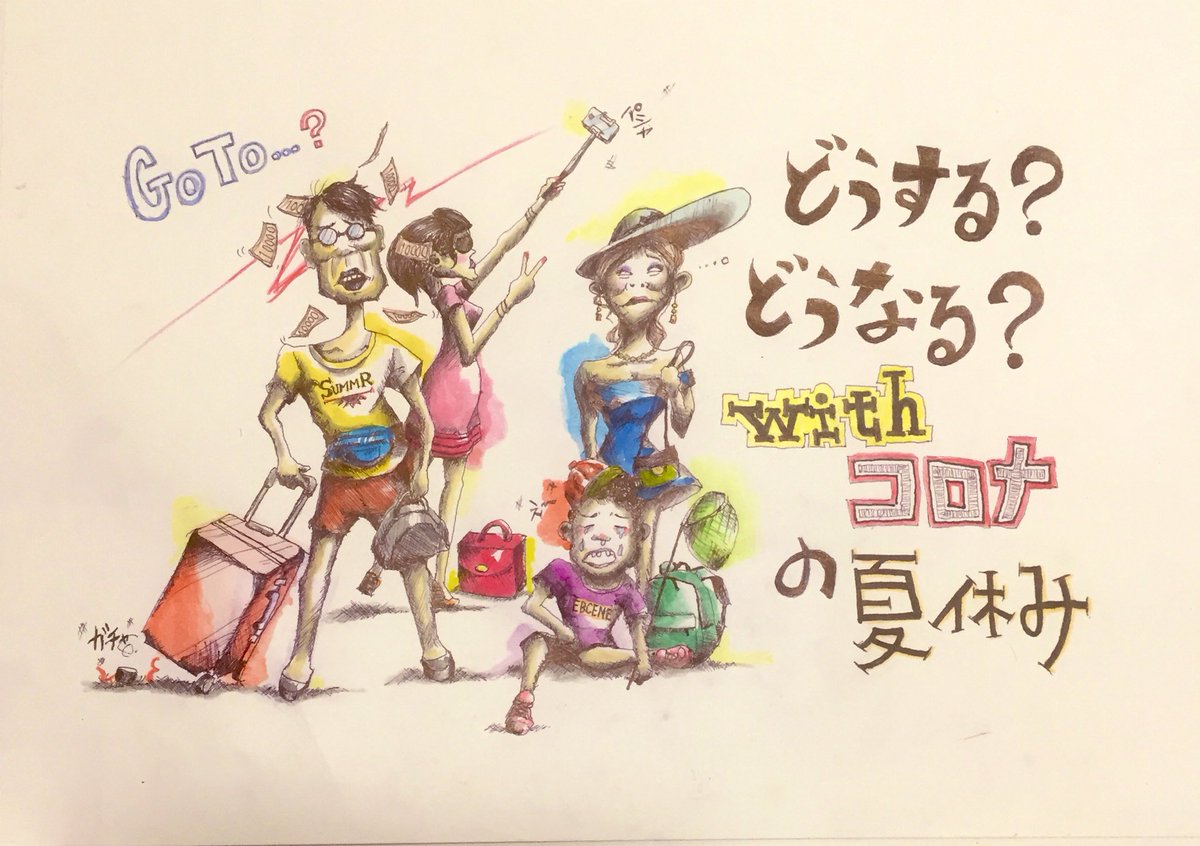 GoTo...?
パシャ
どうする?
どうなる?
with
コロナ
の夏休み
10000
SUMMR
EBCENE
ガチャ